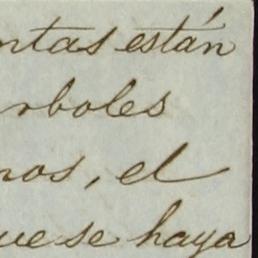 ntas están
rboles
nos, el
ue se haya